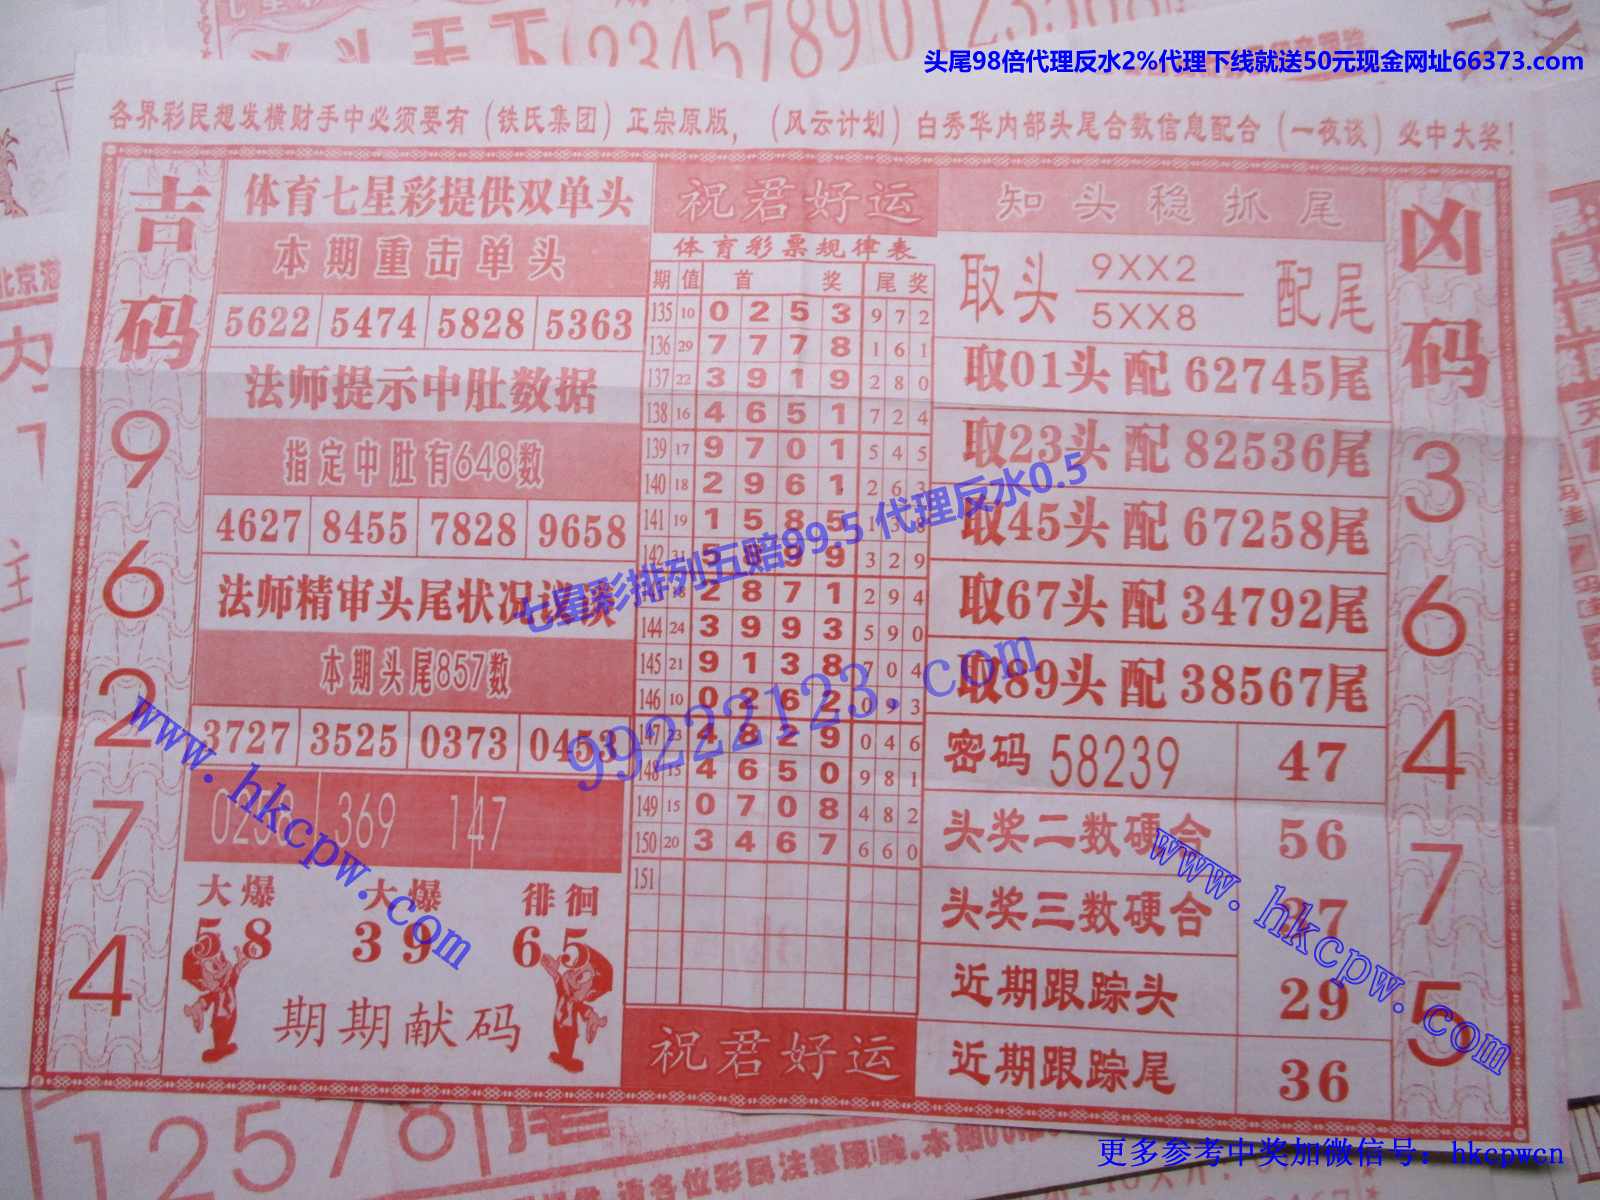 头尾98倍代理反水2%代理下线就送50元现金网址66373.com
各界彩民想发横财手中必须要有（铁氏集团）正宗原版，（风云计划）白秀华内部头尾合数信息配合（一夜谈）必中大奖！
吉码
9
6
2
7
4
体育七星彩提供双单头
本期重击单头
5622 5474 5828 5363
法师提示中肚数据
指定中肚有648数
4627 8455 7828 9658
法师精审头尾状况
本期头尾857数
3727 3525 0373 0453
369 147
大爆 大爆 徘徊
58 39 65
期期献码
祝君好运
体育彩票规律表
期 值 首 奖 尾 奖
135 10 0 2 5 3 9 7 2
136 29 7 7 7 8 1 6 1
137 22 3 9 1 9 2 8 0
138 16 4 6 5 1 7 2 4
139 17 9 7 0 1 5 4 5
140 18 2 9 6 1 2 6 3
141 19 1 5 8 5
142 31 5 8 9 9 3 2 9
2 8 7 1 2 9 4
144 24 3 9 9 3 5 9 0
145 21 9 1 3 8 7 0 4
146 10 0 2 6 2 0 9 3
147 23 4 8 2 9 0 4 6
148 15 4 6 5 0 9 8 1
149 15 0 7 0 8 4 8 2
150 20 3 4 6 7 6 6 0
151
祝君好运
知头稳抓尾
取头 9XX2 配尾
5XX8
取01头 配 62745尾
取23头 配 82536尾
取45头 配 67258尾
取67头 配 34792尾
取89头 配 38567尾
密码 58239 47
头奖二数硬合 56
头奖三数硬合 27
近期跟踪头 29
近期跟踪尾 36
凶码
3
6
4
7
5
七星彩排列五赔99.5 代理反水0.5
99222123.com
www.hkcpw.com
www.hkcpw.com
12578尾
更多参考中奖加微信号：hkcpwcn